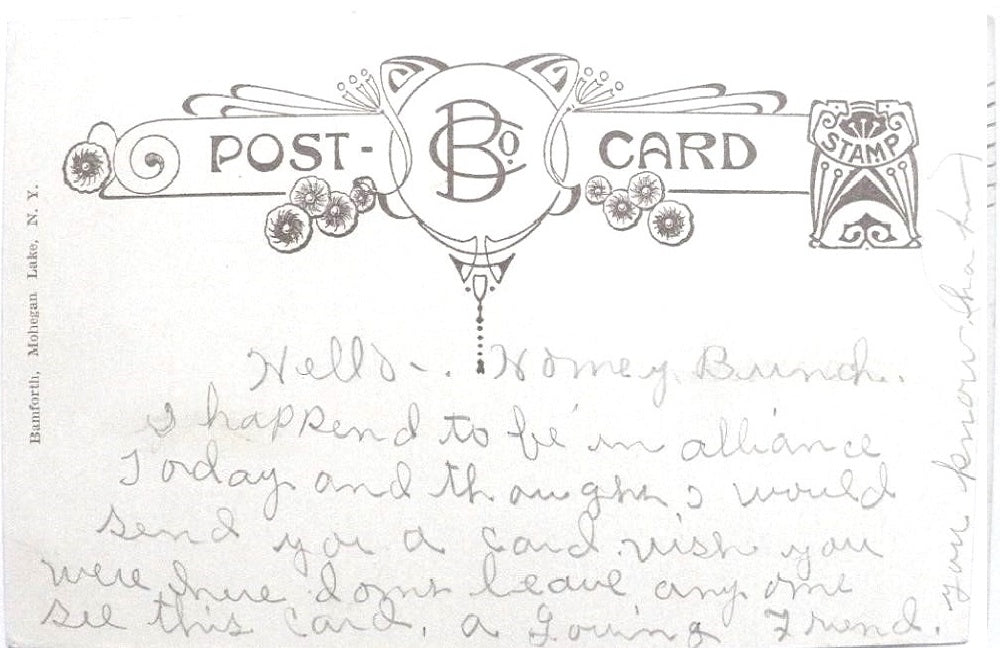 POST-
BCo.
CARD
STAMP
Bamforth, Mohegan Lake, N. Y.
Hello-. Homey Bunch.
I happend to be in alliance
Today and thought I would
send you a card. wish you
were here dont leave any one
see this card. a Loving Friend.
you know